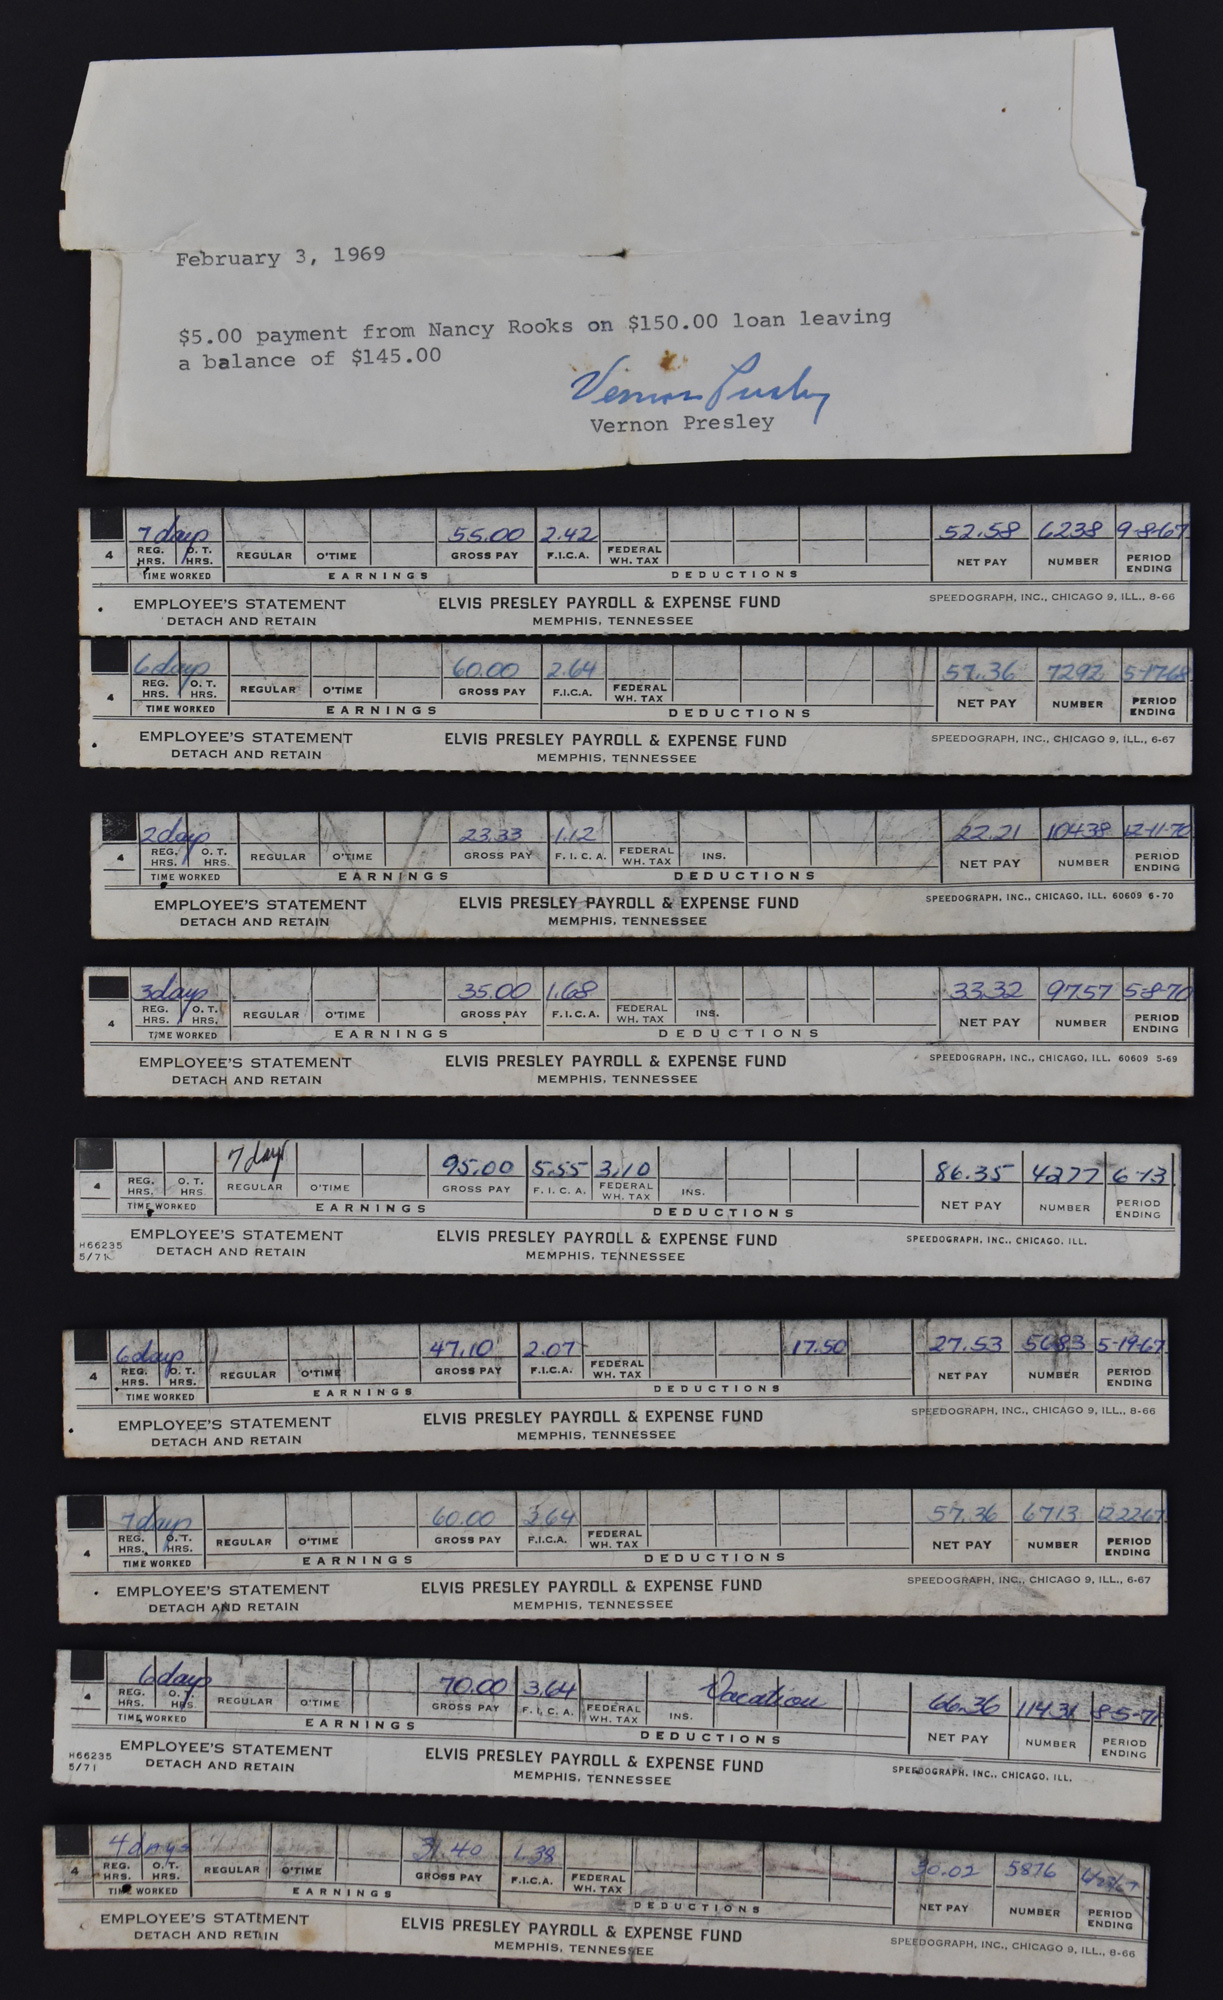 February 3, 1969
$5.00 payment from Nancy Rooks on $150.00 loan leaving
a balance of $145.00
Vernon Presley
Vernon Presley
7 days 55.00 2.42 52.58 6238 9-8-67
4 REG. HRS. O. T. HRS. REGULAR O'TIME GROSS PAY F.I.C.A. FEDERAL WH. TAX NET PAY NUMBER PERIOD ENDING
TIME WORKED EARNINGS DEDUCTIONS
EMPLOYEE'S STATEMENT ELVIS PRESLEY PAYROLL & EXPENSE FUND SPEEDOGRAPH, INC., CHICAGO 9, ILL., 8-66
DETACH AND RETAIN MEMPHIS, TENNESSEE
6 days 60.00 2.64 57.36 7292 5-17-68
4 REG. HRS. O. T. HRS. REGULAR O'TIME GROSS PAY F.I.C.A. FEDERAL WH. TAX NET PAY NUMBER PERIOD ENDING
TIME WORKED EARNINGS DEDUCTIONS
EMPLOYEE'S STATEMENT ELVIS PRESLEY PAYROLL & EXPENSE FUND SPEEDOGRAPH, INC., CHICAGO 9, ILL., 6-67
DETACH AND RETAIN MEMPHIS, TENNESSEE
2 days 23.33 1.12 22.21 10438 12-11-70
4 REG. HRS. O. T. HRS. REGULAR O'TIME GROSS PAY F. I. C. A. FEDERAL WH. TAX INS. NET PAY NUMBER PERIOD ENDING
TIME WORKED EARNINGS DEDUCTIONS
EMPLOYEE'S STATEMENT ELVIS PRESLEY PAYROLL & EXPENSE FUND SPEEDOGRAPH, INC., CHICAGO, ILL. 60609 6-70
DETACH AND RETAIN MEMPHIS, TENNESSEE
3 days 35.00 1.68 33.32 9757 5-8-70
4 REG. HRS. O. T. HRS. REGULAR O'TIME GROSS PAY F.I.C.A. FEDERAL WH. TAX INS. NET PAY NUMBER PERIOD ENDING
TIME WORKED EARNINGS DEDUCTIONS
EMPLOYEE'S STATEMENT ELVIS PRESLEY PAYROLL & EXPENSE FUND SPEEDOGRAPH, INC., CHICAGO, ILL. 60609 5-69
DETACH AND RETAIN MEMPHIS, TENNESSEE
7 days 95.00 5.55 3.10 86.35 4277 6-13
4 REG. HRS. O. T. HRS. REGULAR O'TIME GROSS PAY F. I. C. A. FEDERAL WH. TAX INS. NET PAY NUMBER PERIOD ENDING
TIME WORKED EARNINGS DEDUCTIONS
H66235 EMPLOYEE'S STATEMENT ELVIS PRESLEY PAYROLL & EXPENSE FUND SPEEDOGRAPH, INC., CHICAGO, ILL.
5/71 DETACH AND RETAIN MEMPHIS, TENNESSEE
6 days 47.10 2.07 17.50 27.53 5683 5-19-67
4 REG. HRS. O. T. HRS. REGULAR O'TIME GROSS PAY F.I.C.A. FEDERAL WH. TAX NET PAY NUMBER PERIOD ENDING
TIME WORKED EARNINGS DEDUCTIONS
EMPLOYEE'S STATEMENT ELVIS PRESLEY PAYROLL & EXPENSE FUND SPEEDOGRAPH, INC., CHICAGO 9, ILL., 8-66
DETACH AND RETAIN MEMPHIS, TENNESSEE
7 days 60.00 2.64 57.36 6713 12-22-67
4 REG. HRS. O. T. HRS. REGULAR O'TIME GROSS PAY F.I.C.A. FEDERAL WH. TAX NET PAY NUMBER PERIOD ENDING
TIME WORKED EARNINGS DEDUCTIONS
EMPLOYEE'S STATEMENT ELVIS PRESLEY PAYROLL & EXPENSE FUND SPEEDOGRAPH, INC., CHICAGO 9, ILL., 6-67
DETACH AND RETAIN MEMPHIS, TENNESSEE
6 days 70.00 3.64 Vacation 66.36 11431 8-5-71
4 REG. HRS. O. T. HRS. REGULAR O'TIME GROSS PAY F. I. C. A. FEDERAL WH. TAX INS. NET PAY NUMBER PERIOD ENDING
TIME WORKED EARNINGS DEDUCTIONS
H66235 EMPLOYEE'S STATEMENT ELVIS PRESLEY PAYROLL & EXPENSE FUND SPEEDOGRAPH, INC., CHICAGO, ILL.
5/71 DETACH AND RETAIN MEMPHIS, TENNESSEE
4 days 31.40 1.38 30.02 5876
4 REG. HRS. O. T. HRS. REGULAR O'TIME GROSS PAY F.I.C.A. FEDERAL WH. TAX NET PAY NUMBER PERIOD ENDING
TIME WORKED EARNINGS DEDUCTIONS
EMPLOYEE'S STATEMENT ELVIS PRESLEY PAYROLL & EXPENSE FUND SPEEDOGRAPH, INC., CHICAGO 9, ILL., 8-66
DETACH AND RETAIN MEMPHIS, TENNESSEE